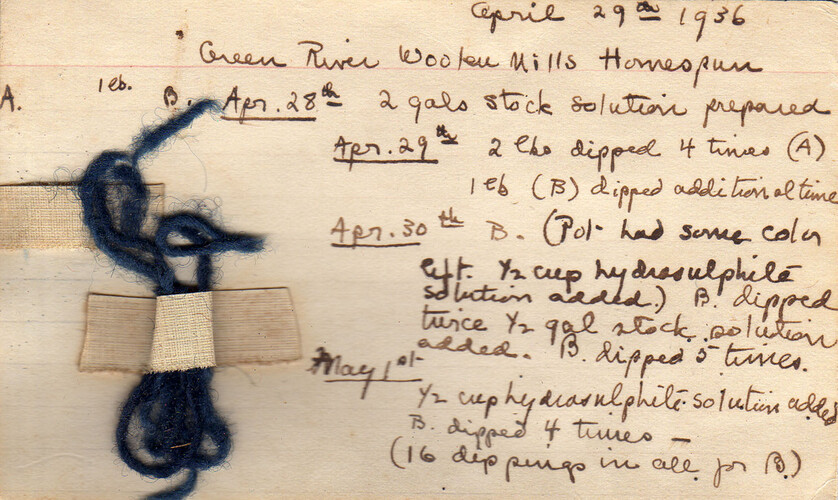 April 29th 1936
Green River Woolen Mills Homespun
A. 1 lb. B. Apr. 28th 2 gals stock solution prepared
Apr. 29th 2 lbs dipped 4 times (A)
1 lb (B) dipped additional time
Apr. 30th B. (Pot had some color
left. ½ cup hydrosulphite
solution added.) B. dipped
twice ½ gal stock solution
added. B. dipped 5 times.
May 1st
½ cup hydrosulphite solution added
B. dipped 4 times —
(16 dippings in all for B.)